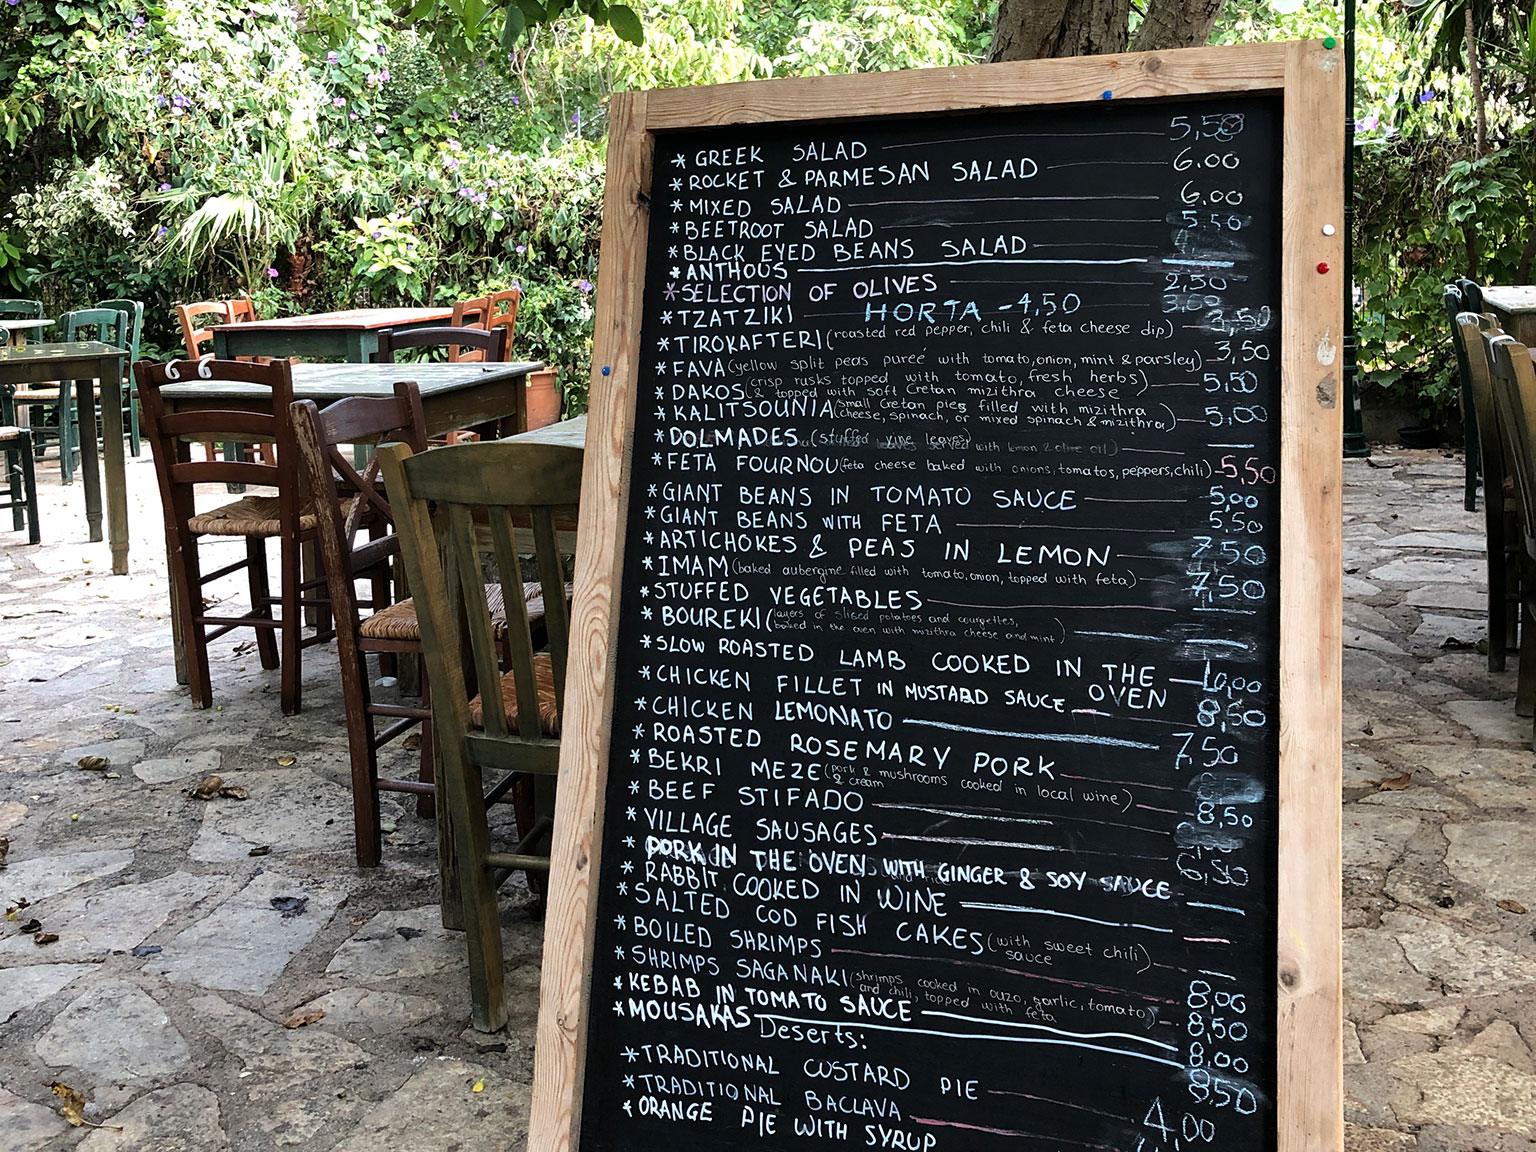 * GREEK SALAD 5,50
* ROCKET & PARMESAN SALAD 6.00
* MIXED SALAD 6.00
* BEETROOT SALAD 5.50
* BLACK EYED BEANS SALAD
* ANTHOUS
* SELECTION OF OLIVES 2,50
* TZATZIKI 3,00
HORTA - 4,50
* TIROKAFTERI (roasted red pepper, chili & feta cheese dip) 3,50
* FAVA (yellow split peas pureé with tomato, onion, mint & parsley) 3,50
* DAKOS (crisp rusks topped with tomato, fresh herbs)
& topped with soft Cretan mizithra cheese 5,50
* KALITSOUNIA (small Cretan pies filled with mizithra
cheese, spinach, or mixed spinach & mizithra) 5,00
* DOLMADES (stuffed vine leaves) served with lemon & olive oil)
* FETA FOURNOU (feta cheese baked with onions, tomatos, peppers, chili) 5,50
* GIANT BEANS IN TOMATO SAUCE 5,00
* GIANT BEANS WITH FETA 5.50
* ARTICHOKES & PEAS IN LEMON 7,50
* IMAM (baked aubergine filled with tomato, onion, topped with feta) 7,50
* STUFFED VEGETABLES
* BOUREKI (layers of sliced potatoes and courgettes,
baked in the oven with mizithra cheese and mint)
* SLOW ROASTED LAMB COOKED IN THE OVEN 10,00
* CHICKEN FILLET IN MUSTARD SAUCE 8,50
* CHICKEN LEMONATO
* ROASTED ROSEMARY PORK 7,50
* BEKRI MEZE (pork & mushrooms cooked in local wine)
& cream 8,50
* BEEF STIFADO
* VILLAGE SAUSAGES 6,50
* PORK IN THE OVEN WITH GINGER & SOY SAUCE
* RABBIT COOKED IN WINE
* SALTED COD FISH CAKES (with sweet chili)
sauce
* BOILED SHRIMPS 8,00
* SHRIMPS SAGANAKI (shrimps cooked in ouzo, garlic, tomato)
and chili, topped with feta 8,50
* KEBAB IN TOMATO SAUCE 8,00
* MOUSAKAS 8,50
Deserts:
* TRADITIONAL CUSTARD PIE 4,00
* TRADITIONAL BACLAVA
* ORANGE PIE WITH SYRUP